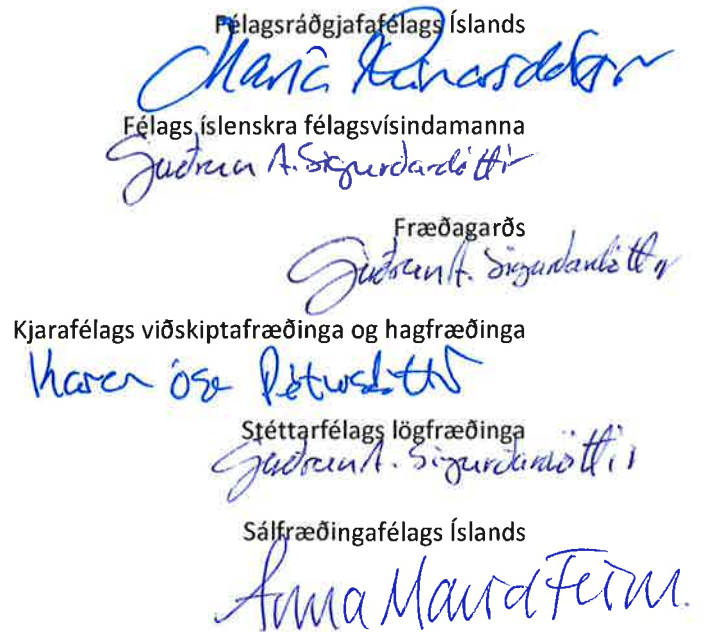 Félagsráðgjafafélags Íslands
María
Félags íslenskra félagsvísindamanna
Guðrún A. Sigurðardóttir
Fræðagarðs
Guðrún A. Sigurðardóttir
Kjarafélags viðskiptafræðinga og hagfræðinga
Karen Ósk Pétursdóttir
Stéttarfélags lögfræðinga
Guðrún A. Sigurðardóttir
Sálfræðingafélags Íslands
Anna María